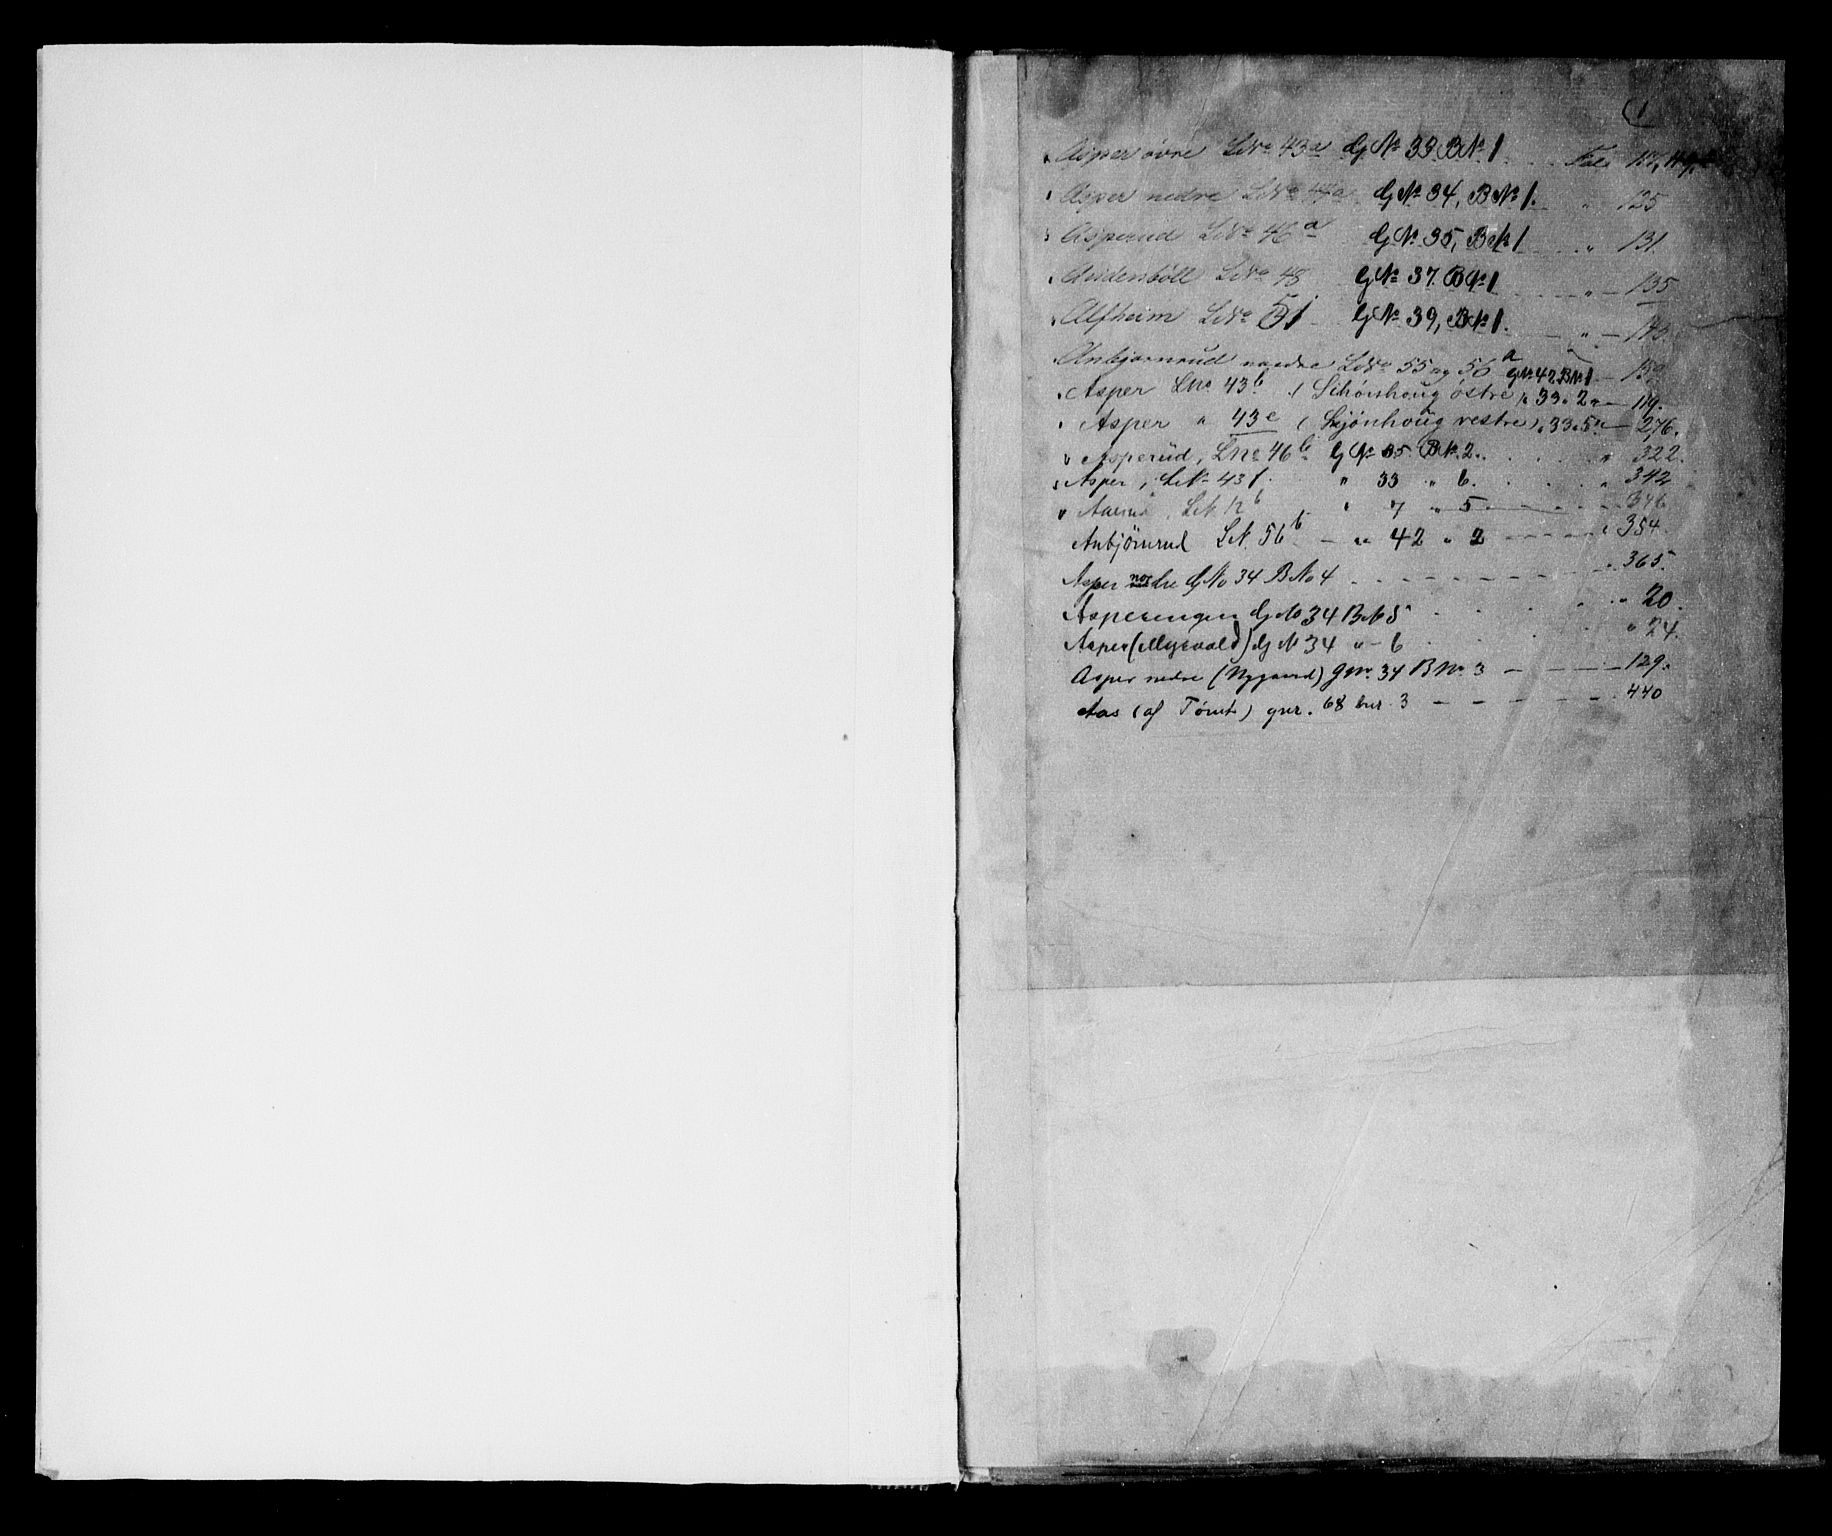 1
Asper övre LNo 43a GNo 33 BNo 1. Fol.
Asper nedre LNo 44a GNo 34, BNo 1. " 125
Asperud LNo 46a GNo 35, BNo 1 " 131.
Audenböll LNo 48 GNo 37. BNo 1 " 135
Alfheim LNo 51 GNo 39, BNo 1. "
Anbjørnrud nordre LNo 55 og 56a GNo 42. BNo 1 159
Asper LNo 43b (Schönhoug östre) " 33 " 2 " 119.
Asper " 43e (Sjönhoug vestre) " 33 " 5 " 276.
Asperud, LNo 46b GNo 35 BNo 2. " 322.
Asper, LNo 43f. " 33 " 6. " 342
Aaerud, LN. 12b " 7 " 5 346
Anbjörnrud LN. 56b " 42 " 2 " 354.
Asper nedre GNo 34 BNo 4 " 365.
Asperengen GNo 34 BNo 5 " 20.
Asper (Myrvold) GN 34 " 6 " 24.
Asper nedre (Nygaard) GNo. 34 BNo. 3 129.
Aas (af Tömt) gnr. 68 bnr. 3 440